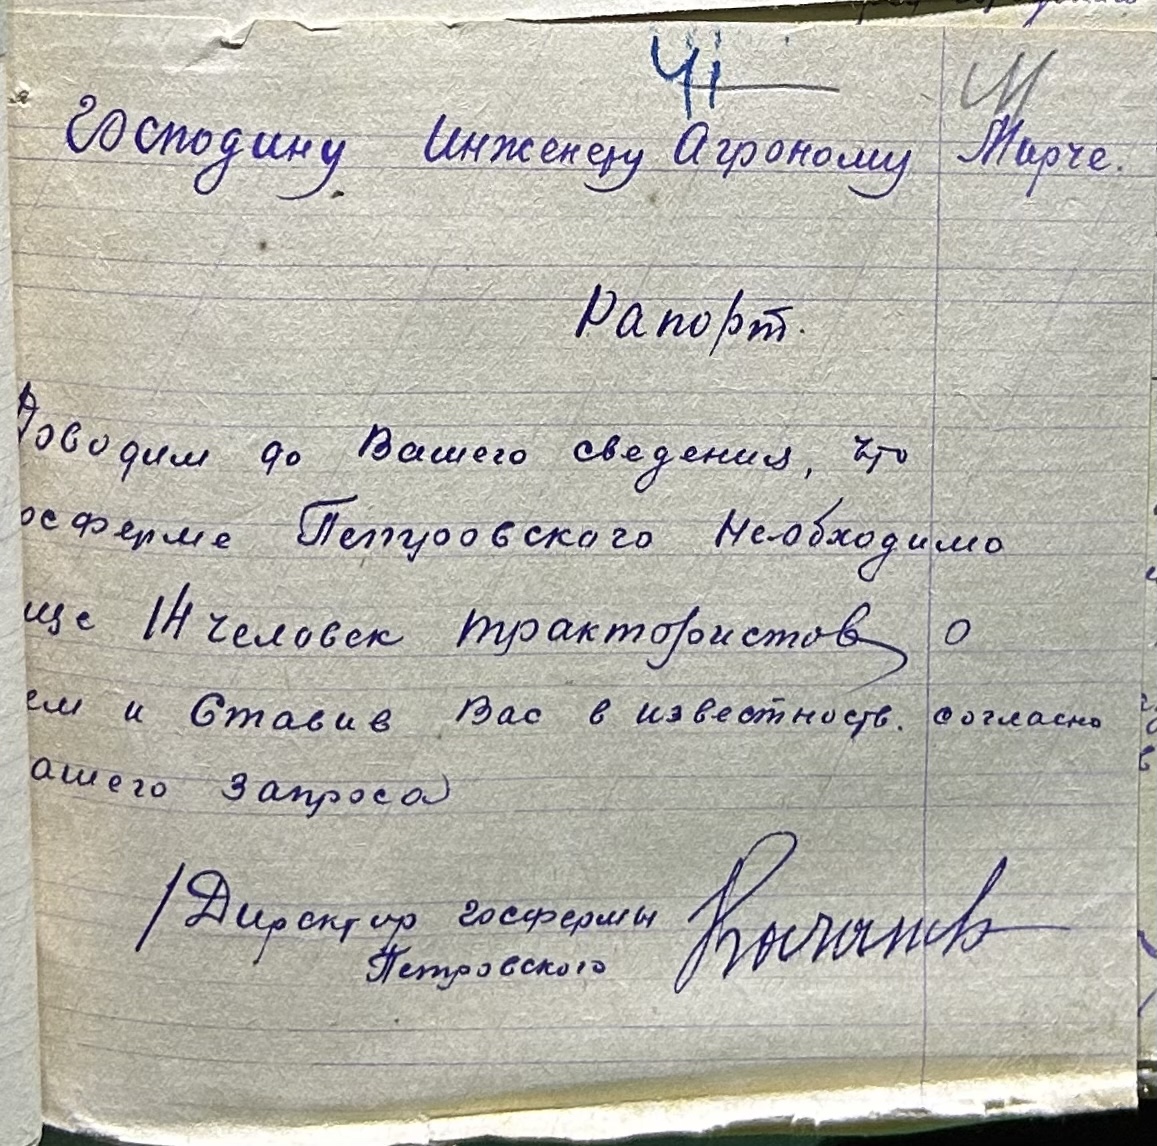 41
Господину Инженеру Агроному Мирче.
Рапорт.
Доводим до Вашего сведения, что
осферме Петровского Необходимо
ще 14 человек трактористов о
ем и Ставив Вас в известность. согласно
ашего запроса
/Директор госфермы
Петровского